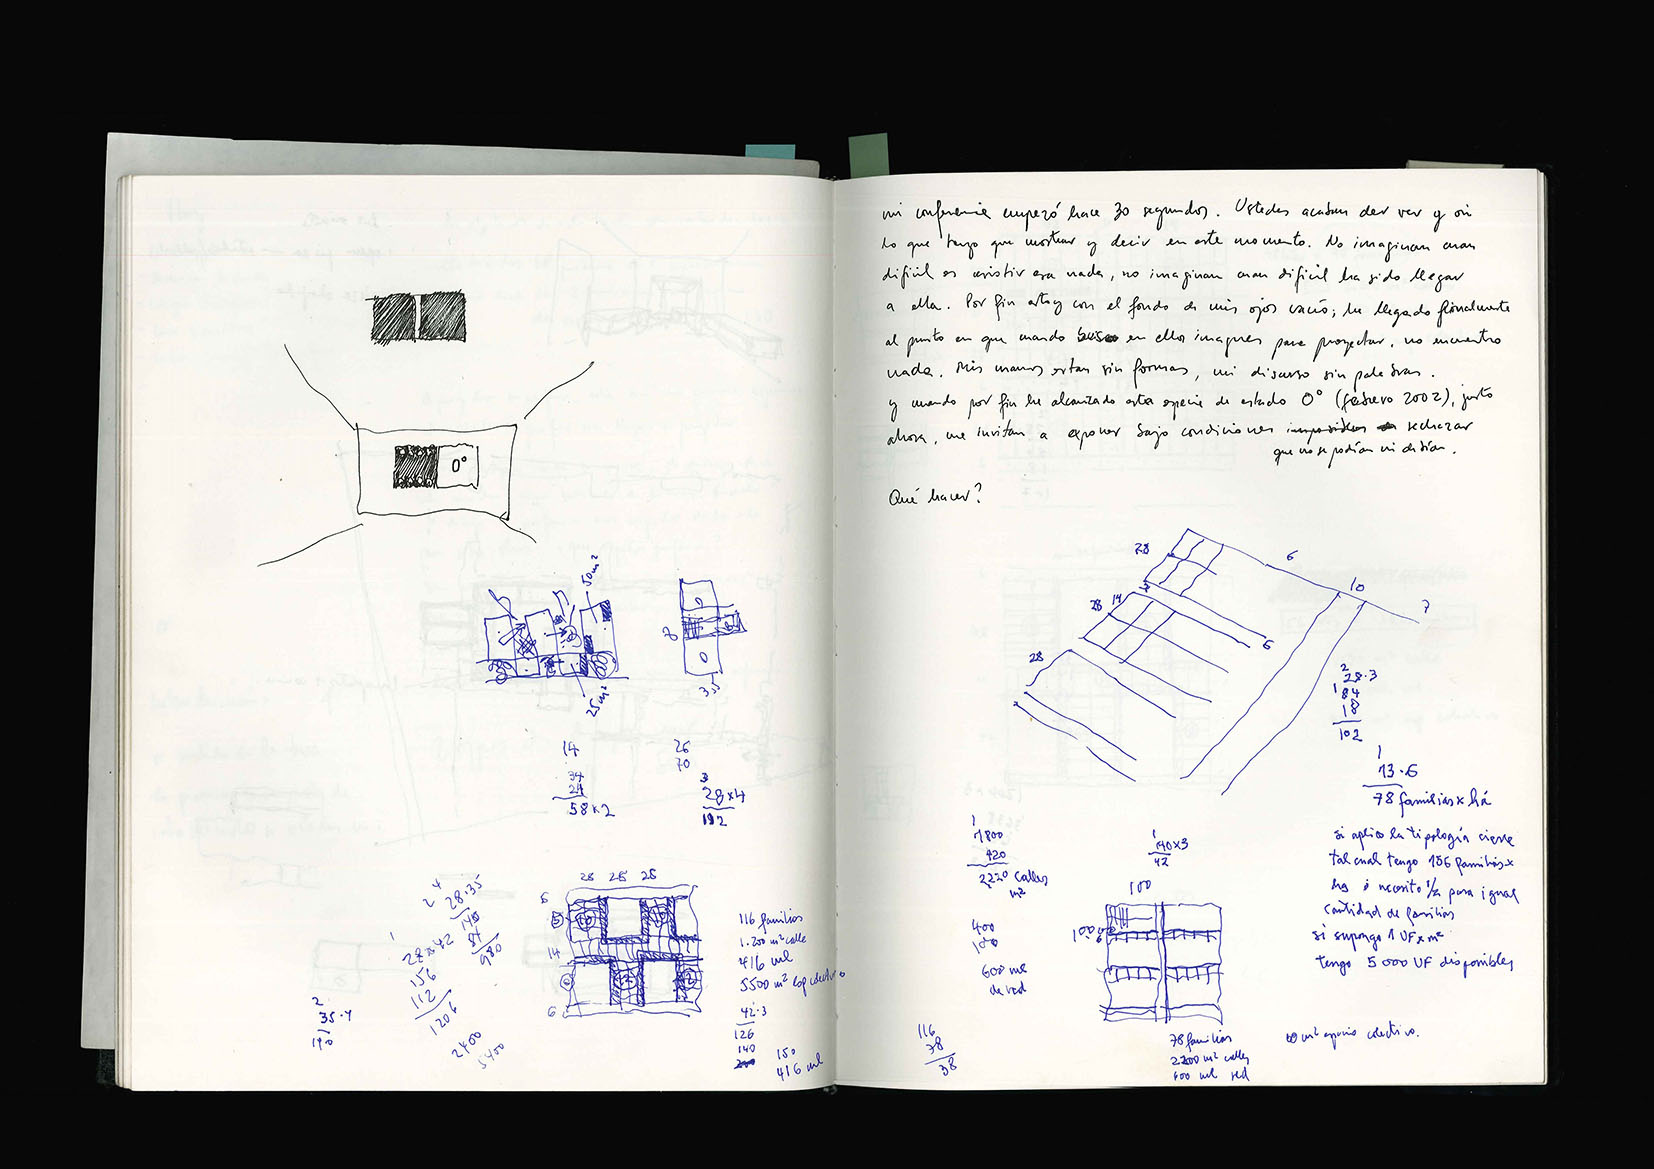 0°
50m²
25m²
8
3,5
14
34
24
58×2
26
70
3
28×4
112
28 28 28
6
5
14
6
2 4
28·35
140
84
980
1
28×42
156
112
1206
2400
5400
2
35·4
140
116 familias
1.200 m² calle
416 ml
5500 m² esp colectivo
42·3
126
140
150
416 ml
mi conferencia empezó hace 30 segundos. Ustedes acaban der ver y oir
lo que tengo que mostrar y decir en este momento. No imaginan cuan
dificil es resistir esa nada, no imaginan cuan dificil ha sido llegar
a ella. Por fin estoy con el fondo de mis ojos vacío; he llegado finalmente
al punto en que cuando busco en ellos imagenes para proyectar, no encuentro
nada. Mis manos estan sin formas, mi discurso sin palabras.
y cuando por fin he alcanzado esta especie de estado 0° (febrero 2002), justo
ahora, me invitan a exponer bajo condiciones imposibles de rechazar
que no se podian ni debian.
Qué hacer?
28
6
10
7
28 14
6
28
2
28·3
1 84
18
102
1
13·6
78 familias × há
si aplico la tipología cierre
tal cual tengo 156 familias ×
ha ó necesito 1/2 para igual
cantidad de familias
si supongo 1 UF × m²
tengo 5000 UF disponibles
1
1800
420
2220 calles
m²
1
140×3
42
100
400
100
600 ml
de red
116
78
38
78 familias
2200 m² calles
600 ml red
00 m² espacio colectivo.